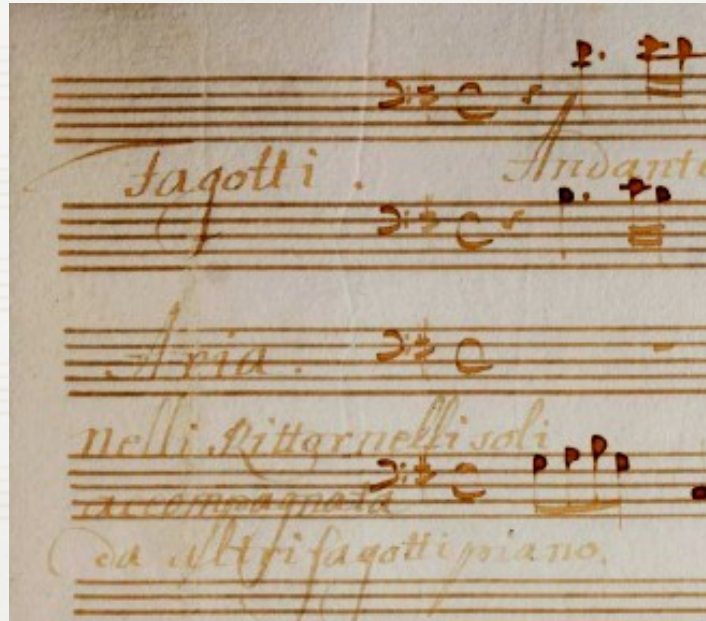 Fagotti.
Andante
Aria.
Nelli Rittornelli soli
accompagnata
da altri fagotti piano.